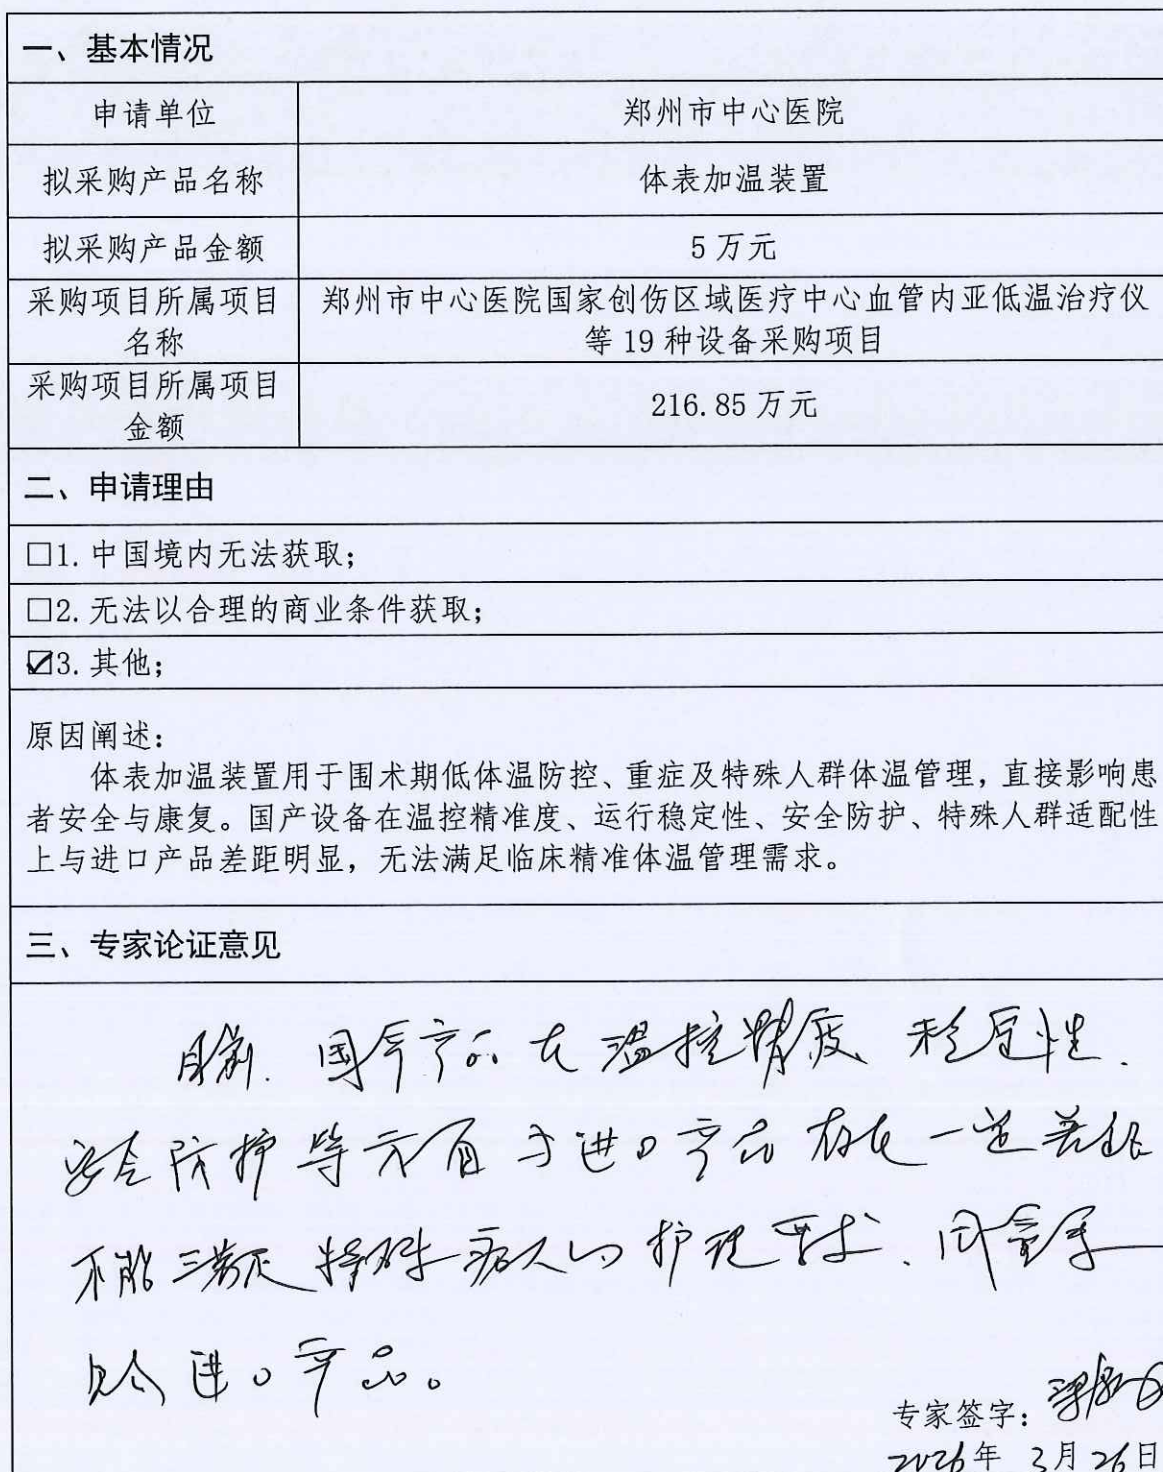 一、基本情况
申请单位 郑州市中心医院
拟采购产品名称 体表加温装置
拟采购产品金额 5万元
采购项目所属项目名称 郑州市中心医院国家创伤区域医疗中心血管内亚低温治疗仪
等19种设备采购项目
采购项目所属项目金额 216.85万元
二、申请理由
□1.中国境内无法获取；
□2.无法以合理的商业条件获取；
☑3.其他；
原因阐述：
体表加温装置用于围术期低体温防控、重症及特殊人群体温管理，直接影响患
者安全与康复。国产设备在温控精准度、运行稳定性、安全防护、特殊人群适配性
上与进口产品差距明显，无法满足临床精准体温管理需求。
三、专家论证意见
目前.国产产品在温控精度、稳定性.
安全防护等方面与进口产品存在一定差距
不能满足特殊病人的护理要求.同意采
购进口产品。
专家签字：
2026年 3月26日